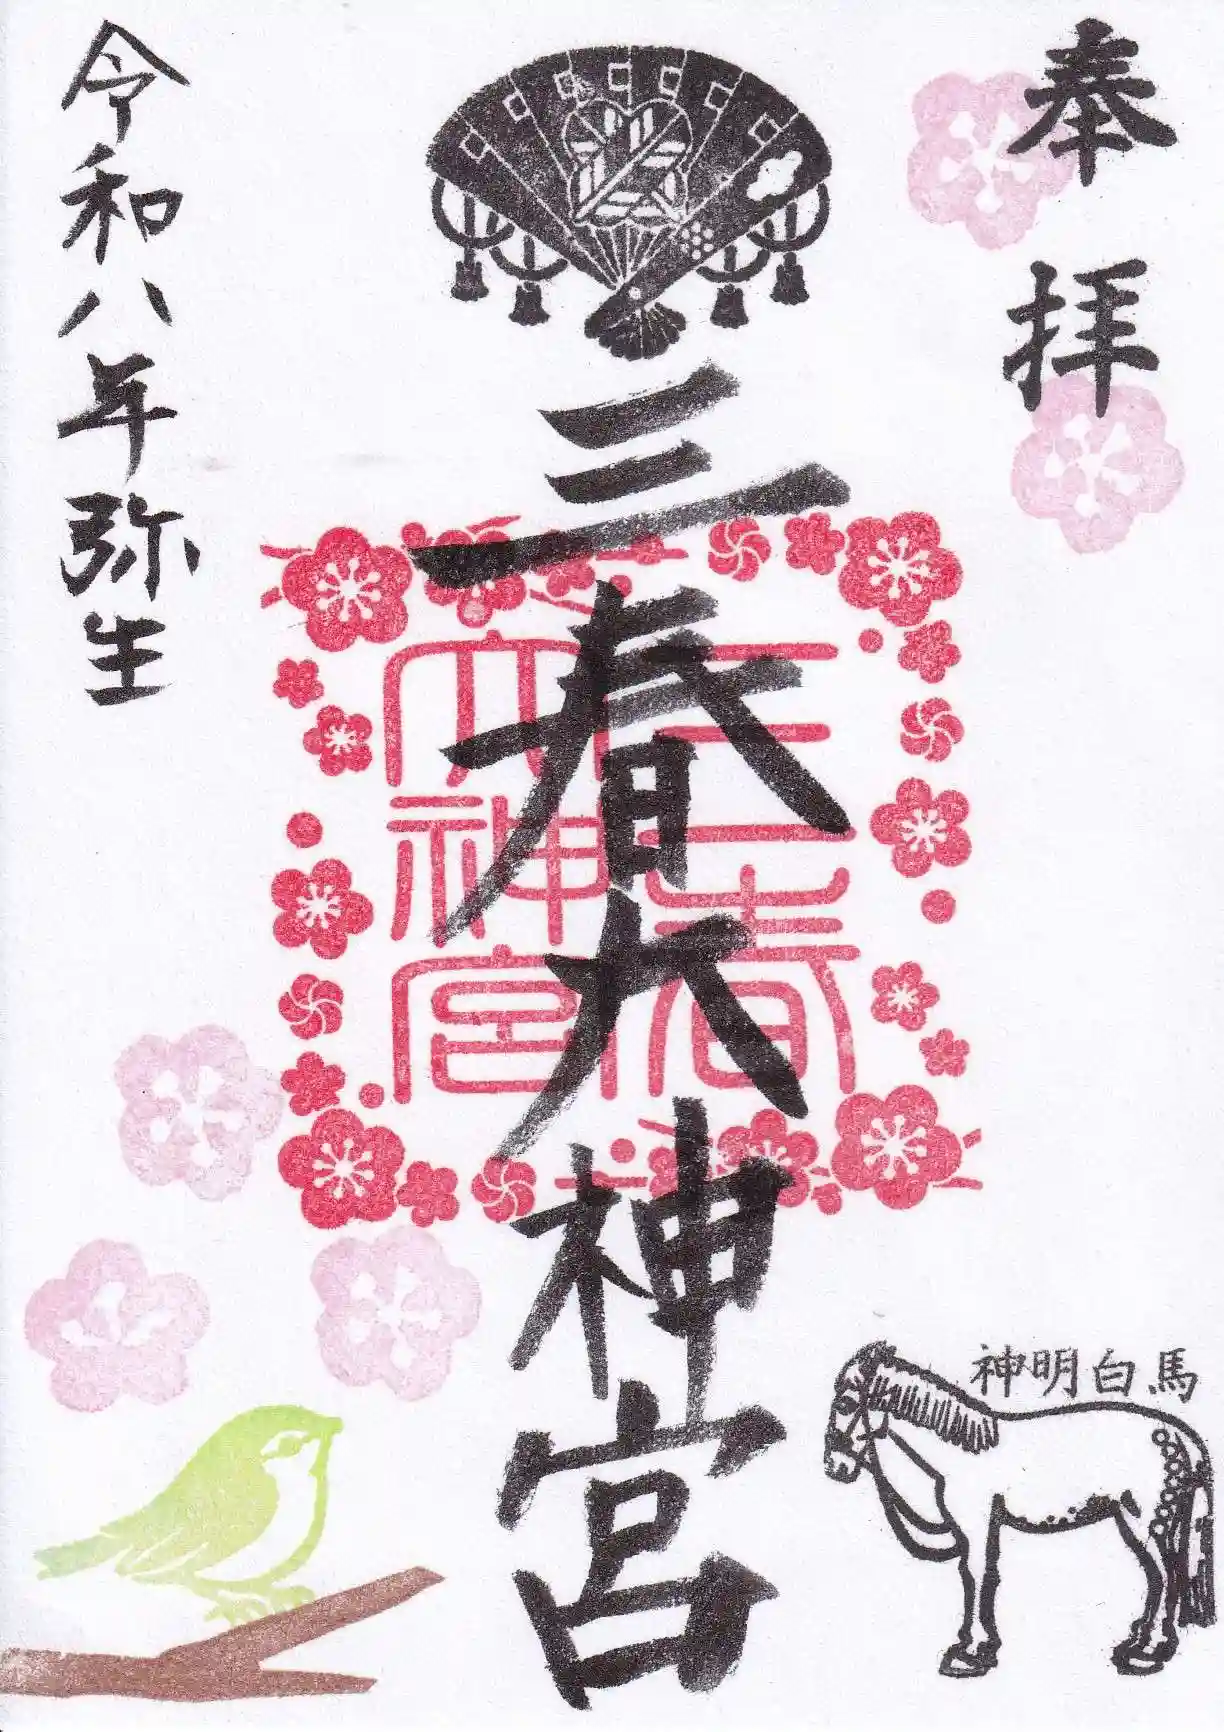 奉拝
三春大神宮
三春
大神宮
令和八年弥生
神明白馬